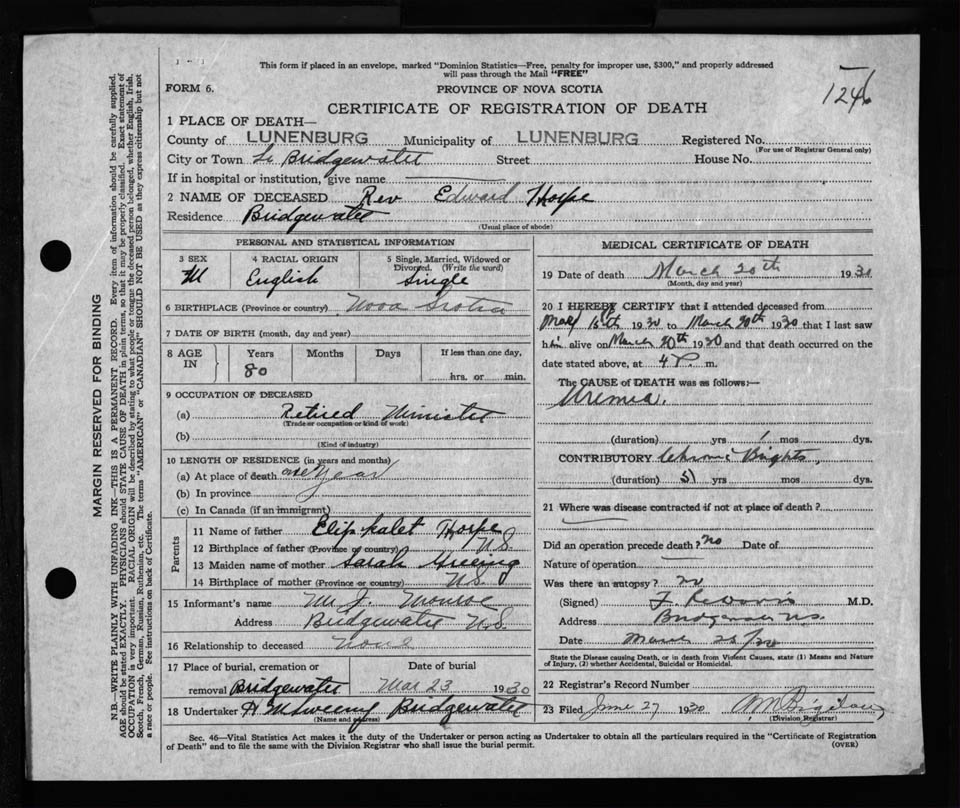 This form if placed in an envelope, marked "Dominion Statistics—Free, penalty for improper use, $300," and properly addressed
will pass through the Mail "FREE"
FORM 6.
PROVINCE OF NOVA SCOTIA
1246
CERTIFICATE OF REGISTRATION OF DEATH
1 PLACE OF DEATH—
County of LUNENBURG Municipality of LUNENBURG Registered No.
(For use of Registrar General only)
City or Town Bridgewater Street House No.
If in hospital or institution, give name
2 NAME OF DECEASED Rev Edward Thorpe
Residence Bridgewater
(Usual place of abode)
PERSONAL AND STATISTICAL INFORMATION
3 SEX
M
4 RACIAL ORIGIN
English
5 Single, Married, Widowed or
Divorced. (Write the word)
Single
6 BIRTHPLACE (Province or country) Nova Scotia
7 DATE OF BIRTH (month, day and year)
8 AGE
IN
Years
80
Months
Days
If less than one day,
hrs. or min.
9 OCCUPATION OF DECEASED
(a) Retired Minister
(Trade or occupation or kind of work)
(b)
(Kind of industry)
10 LENGTH OF RESIDENCE (in years and months)
(a) At place of death one Year
(b) In province
(c) In Canada (if an immigrant)
Parents
11 Name of father Elip halet Thorpe
12 Birthplace of father (Province or country) N.S.
13 Maiden name of mother Sarah
14 Birthplace of mother (Province or country) N.S.
15 Informant's name Mr J. Monroe
Address Bridgewater N.S.
16 Relationship to deceased None
17 Place of burial, cremation or
removal Bridgewater
Date of burial
Mar 23 1930
18 Undertaker Bridgewater
(Name and address)
MEDICAL CERTIFICATE OF DEATH
19 Date of death March 20th 1930
(Month, day and year)
20 I HEREBY CERTIFY that I attended deceased from
15th 1930 to March 20th 1930 that I last saw
him alive on March 20th 1930 and that death occurred on the
date stated above, at 4 P. m.
The CAUSE of DEATH was as follows:—
Uremia.
(duration) yrs 1 mos dys.
CONTRIBUTORY Chronic Brights
(duration) 5 yrs mos dys.
21 Where was disease contracted if not at place of death?
Did an operation precede death? no Date of
Nature of operation
Was there an autopsy? no
(Signed) M.D.
Address Bridgewater N.S.
Date March
State the Disease causing Death, or in death from Violent Causes, state (1) Means and Nature
of Injury, (2) whether Accidental, Suicidal or Homicidal.
22 Registrar's Record Number
23 Filed June 27 1930
(Division Registrar)
Sec. 46—Vital Statistics Act makes it the duty of the Undertaker or person acting as Undertaker to obtain all the particulars required in the "Certificate of Registration
of Death" and to file the same with the Division Registrar who shall issue the burial permit.
(OVER)
MARGIN RESERVED FOR BINDING
N.B.—WRITE PLAINLY WITH UNFADING INK—THIS IS A PERMANENT RECORD. Every item of information should be carefully supplied.
AGE should be stated EXACTLY. PHYSICIANS should STATE CAUSE OF DEATH in plain terms, so that it may be properly classified. Exact statement of
OCCUPATION is very important. RACIAL ORIGIN will be described by stating to what people or tongue the deceased person belonged, whether English, Irish,
Scotch, French, German, Russian, Ruthenian, etc. The terms "AMERICAN" or "CANADIAN" SHOULD NOT BE USED as they express citizenship but not
a race or people. See instructions on back of Certificate.